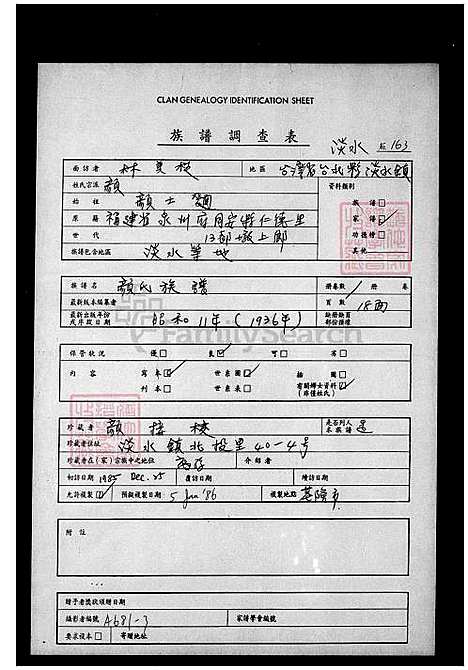 CLAN GENEALOGY IDENTIFICATION SHEET
族譜調查表
淡水 163
面訪者 林 地區 台灣省台北縣淡水鎮
姓氏宗派 顏 資料類別
始祖 顏士 族譜□
原籍 福建省泉州府同安縣仁德里 家譜□
世代 13 功德榜□
族譜包含地區 淡水等地 其他
族譜名 顏氏族譜 冊卷數 冊 卷
最新版本編纂者 頁數 18面
最新出版年份或序跋日期 昭和11年(1936年) 缺頁缺篇部份描繪
保管狀況 優□ 良□ 可□ 劣□
內容 寫本□ 世系圖□ 插圖□
刊本□ 世系表□ 有關婦女資料□(非僅姓氏)
珍藏者 顏 是否列入本族譜 是
珍藏者住址 淡水鎮北投里40-4號
珍藏者在(家)宗族中之地位 介紹者
初訪日期 1985 Dec. 25 覆訪日期 續訪日期
允許複製□ 預擬複製日期 5 Jan '86 複製地點 基隆市
附註
贈予者獎狀頒贈日期
攝影者編號 A681-3 家譜學會編號
要求複本□ 寄贈地址
FamilySearch